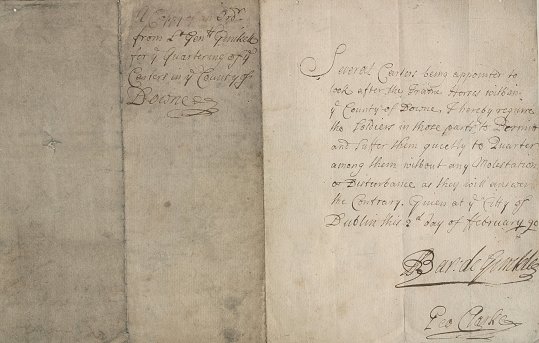 from Lt Genll Ginkel
for ye Quartering of ye
Carters in ye County of
Downe
Several Carters being appointed to
look after the Traine Horses within
ye County of Downe, I hereby require
the Soldiers in those parts to Permit
and suffer them quietly to Quarter
among them without any Molestation
or Disturbance as they will answer
the Contrary. Given at ye City of
Dublin this 2d day of February 90
Bar. de Ginkell
Geo Clarke